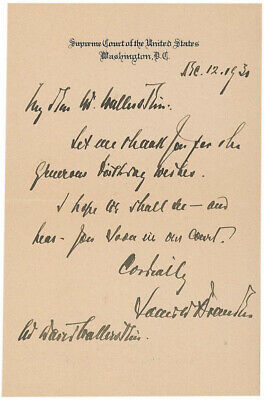 Supreme Court of the United States
Washington, D.C.
Dec. 12. 193
My dear Mr. Wallerstein:
Let me thank you for the
generous birthday wishes.
I hope we shall see – and
hear – you soon in our court.
Cordially
Mr David Wallerstein.